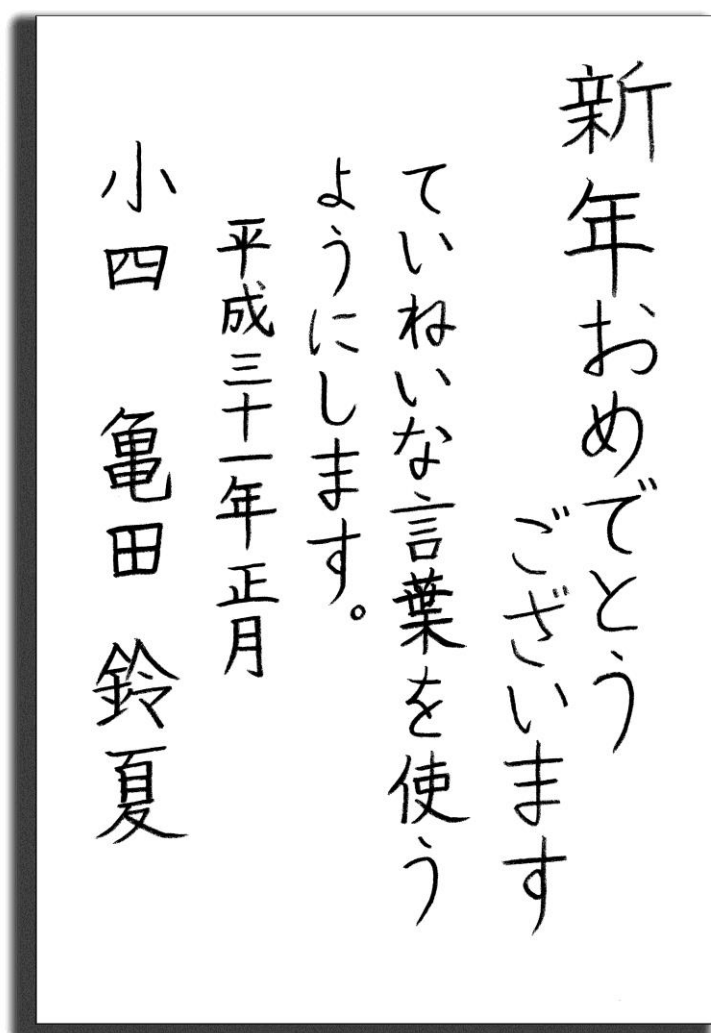 新年おめでとう
ございます
ていねいな言葉を使う
ようにします。
平成三十一年正月
小四 亀田 鈴夏